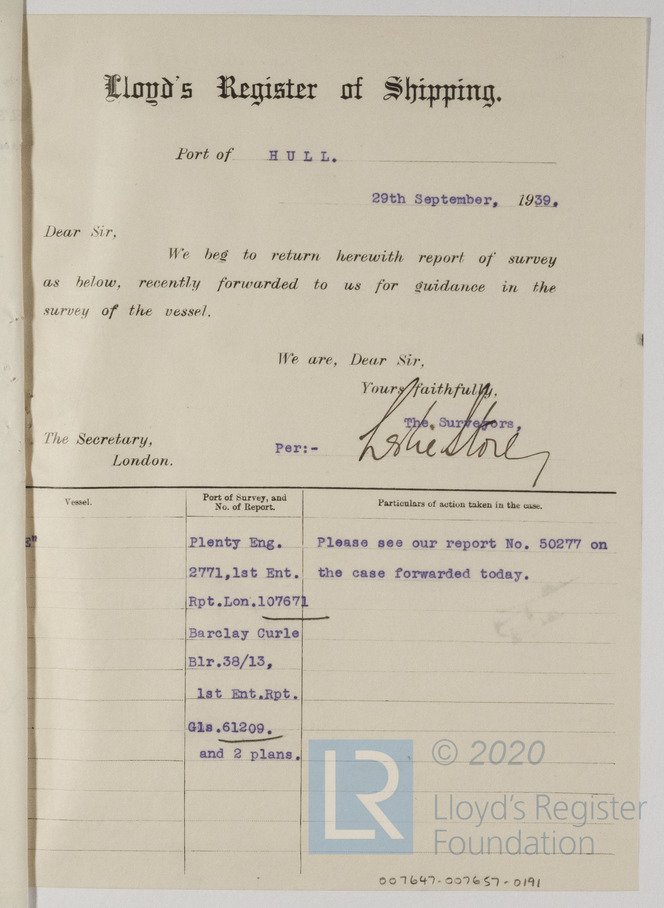 Lloyd's Register of Shipping.
Port of HULL.
29th September, 1939.
Dear Sir,
We beg to return herewith report of survey
as below, recently forwarded to us for guidance in the
survey of the vessel.
We are, Dear Sir,
Yours faithfully,
The Surveyors,
The Secretary,
Per:-
London.
Vessel.
Port of Survey, and
No. of Report.
Particulars of action taken in the case.
E"
Plenty Eng.
2771,1st Ent.
Rpt.Lon.107671
Barclay Curle
Blr.38/13,
1st Ent.Rpt.
Gls.61209.
and 2 plans.
Please see our report No. 50277 on
the case forwarded today.
LR
© 2020
Lloyd's Register
Foundation
007647-007657-0191